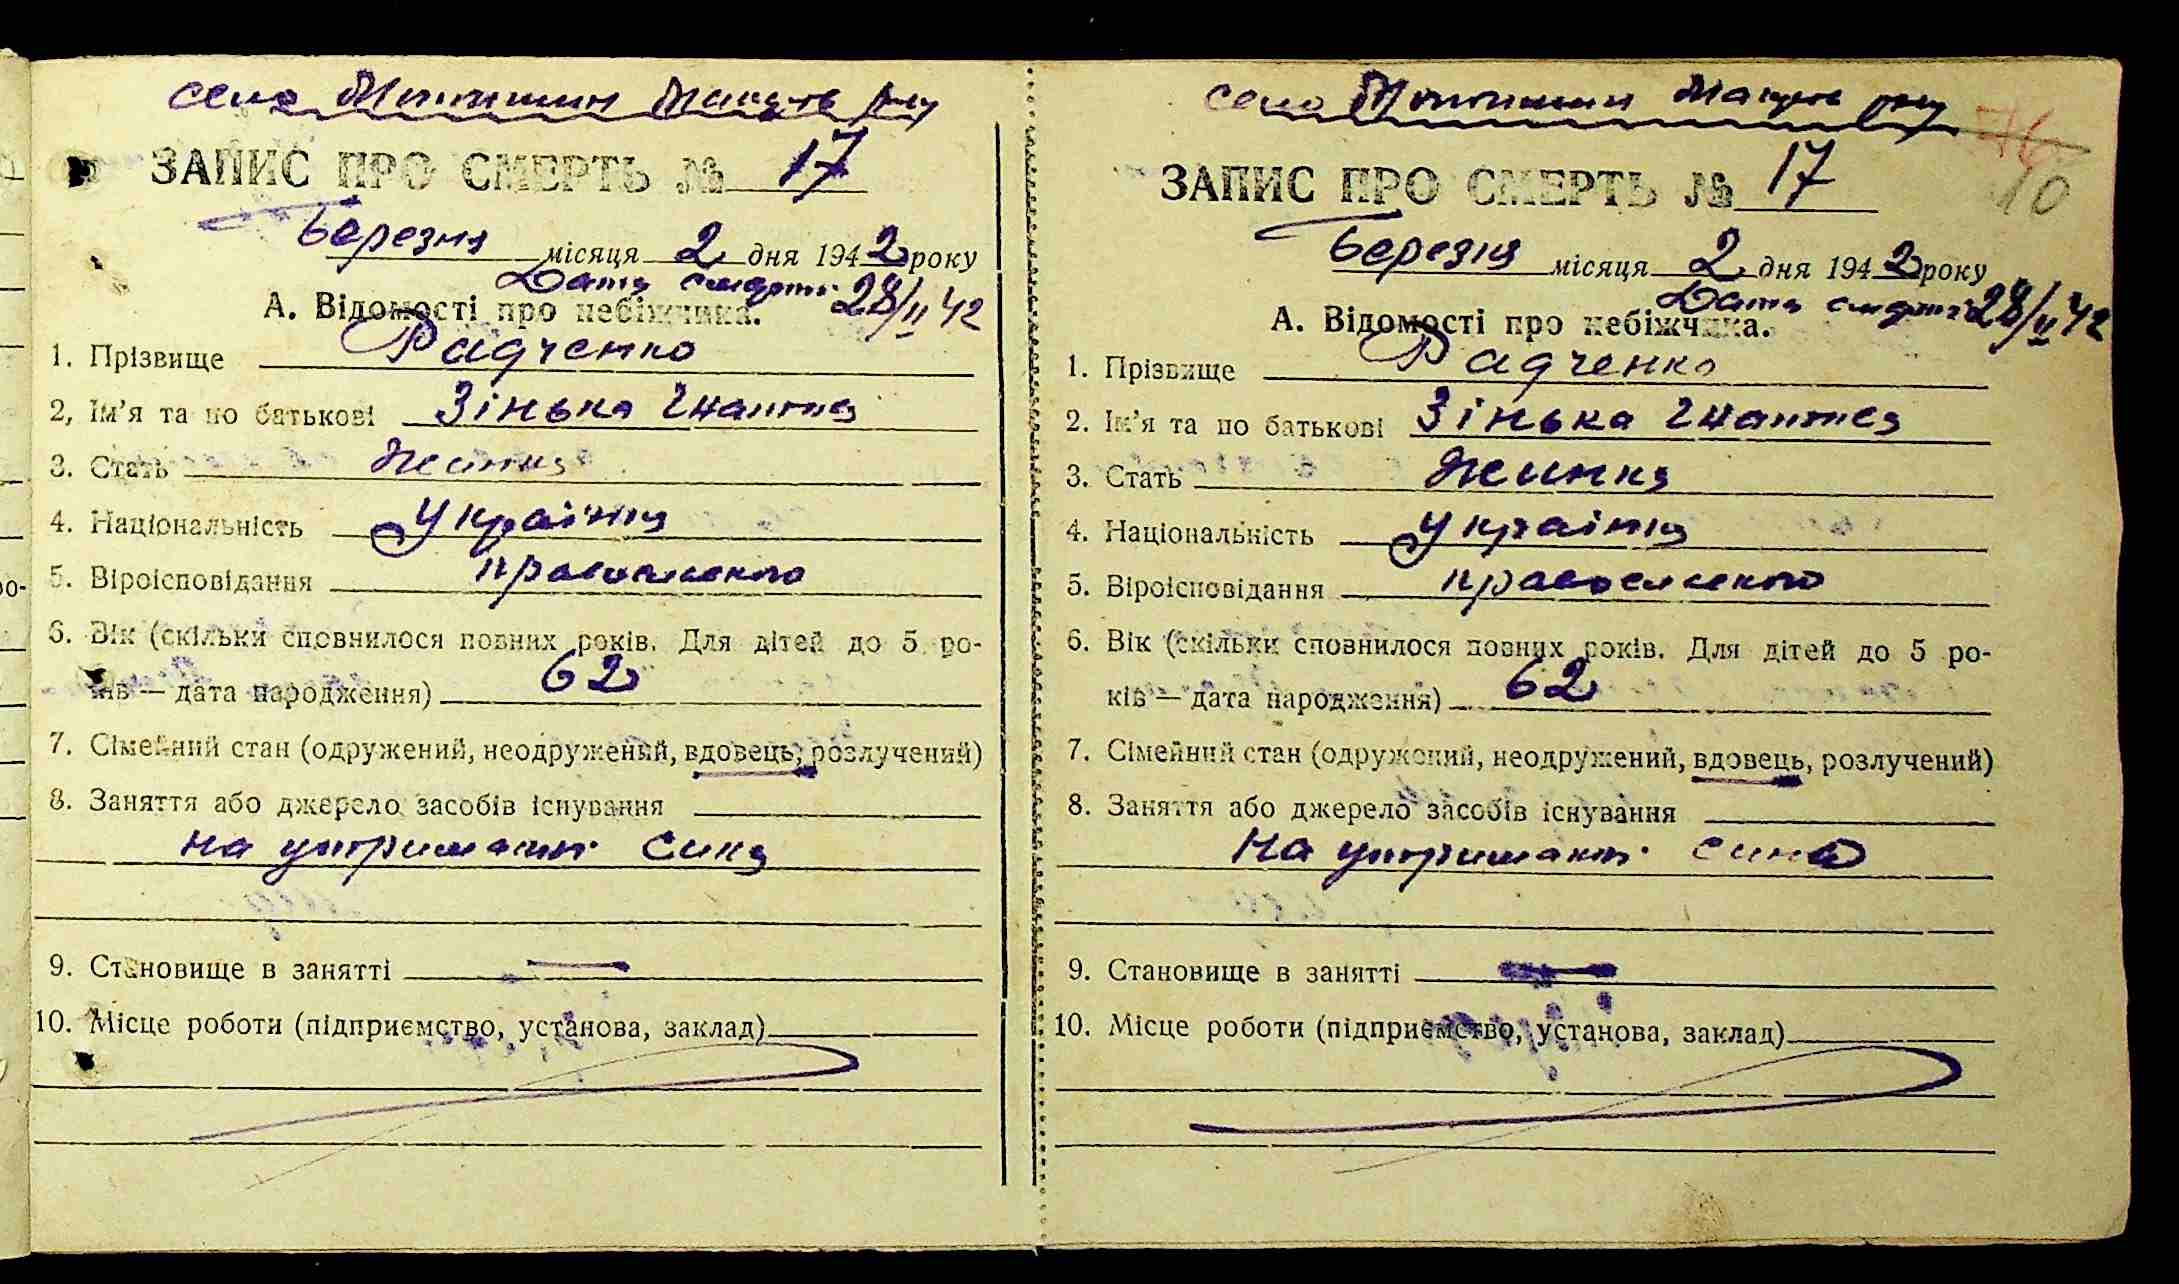 село Мотижин Макарів р-ну
ЗАПИС ПРО СМЕРТЬ № 17
Березня місяця 2 дня 1942 року
Дата смерті 28/II 42
А. Відомості про небіжчика.
1. Прізвище Радченко
2, Ім'я та по батькові Зінька Гнатна
3. Стать Жинка
4. Національність Українка
5. Віроісповідання православного
6. Вік (скільки сповнилося повних років. Для дітей до 5 ро-
ків — дата народження) 62
7. Сімейний стан (одружений, неодружений, вдовець, розлучений)
8. Заняття або джерело засобів існування
на утриманні сина
9. Становище в занятті —
10. Місце роботи (підприємство, установа, заклад)
село Мотижин Макарів р-ну
10
ЗАПИС ПРО СМЕРТЬ № 17
Березня місяця 2 дня 1942 року
Дата смерті 28/II 42
А. Відомості про небіжчика.
1. Прізвище Радченко
2. Ім'я та по батькові Зінька Гнатна
3. Стать Жинка
4. Національність Українка
5. Віроісповідання православного
6. Вік (скільки сповнилося повних років. Для дітей до 5 ро-
ків — дата народження) 62
7. Сімейний стан (одружений, неодружений, вдовець, розлучений)
8. Заняття або джерело засобів існування
на утриманні сина
9. Становище в занятті —
10. Місце роботи (підприємство, установа, заклад)